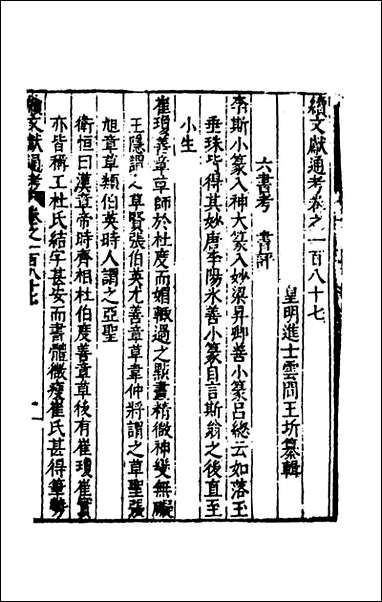 續文獻通考卷之一百八十七
皇明進士雲間王圻纂輯
六書考 書評
李斯小篆入神大篆入妙梁昇卿善小篆呂總云如落玉
垂珠皆得其妙唐李陽冰善小篆自言斯翁之後直至
小生
崔瑗善章草師於杜度而媚趣過之點畫精微神變無礙
王隱謂之草賢張伯英尤善章草韋仲將謂之草聖張
旭章草類伯英時人謂之亞聖
衛恒曰漢章帝時齊相杜伯度善章草後有崔瑗崔寔
亦皆稱工杜氏結字甚安而書體微瘦崔氏甚得筆勢
文獻通考 卷之一百八十七 一